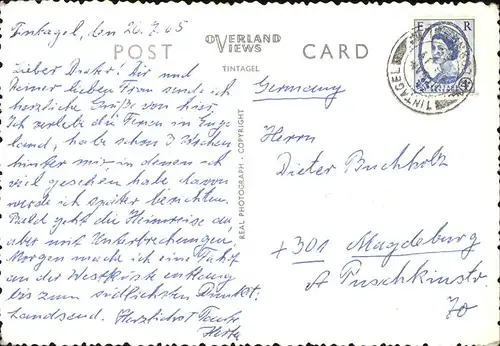 Tintagel, den 26.7.65
OVERLAND VIEWS
POST CARD
TINTAGEL
E R
TINTAGEL
Lieber Dieter! Dir und
Deiner lieben Frau sende ich
herzliche Grüße von hier.
Ich verlebe die Ferien in Eng-
land, habe schon 3 Wochen
hinter mir, in denen ich
viel gesehen habe, davon
werde ich später berichten.
Bald geht die Heimreise an,
aber mit Unterbrechungen.
Morgen mache ich eine Fahrt
an der Westküste entlang
bis zum südlichsten Punkt:
Landsend. Herzlichst Tante
Herta
REAL PHOTOGRAPH - COPYRIGHT
Germany
Herrn
Dieter Buchholz
301 Magdeburg
Puschkinstr.